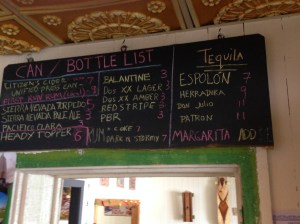 CAN / BOTTLE LIST
CITIZEN CIDER
SIERRA NEVADA TORPEDO 5
SIERRA NEVADA PALE ALE 3
PACIFICO CLARO
HEADY TOPPER 6
BALANTINE 3
DOS XX LAGER 3
DOS XX AMBER 3
RED STRIPE 3
PBR 3
RUM
DARK N STORMY 7
Tequila
ESPOLÓN 7
HERRADURA 9
DON JULIO 11
PATRON 11
MARGARITA ADD 1